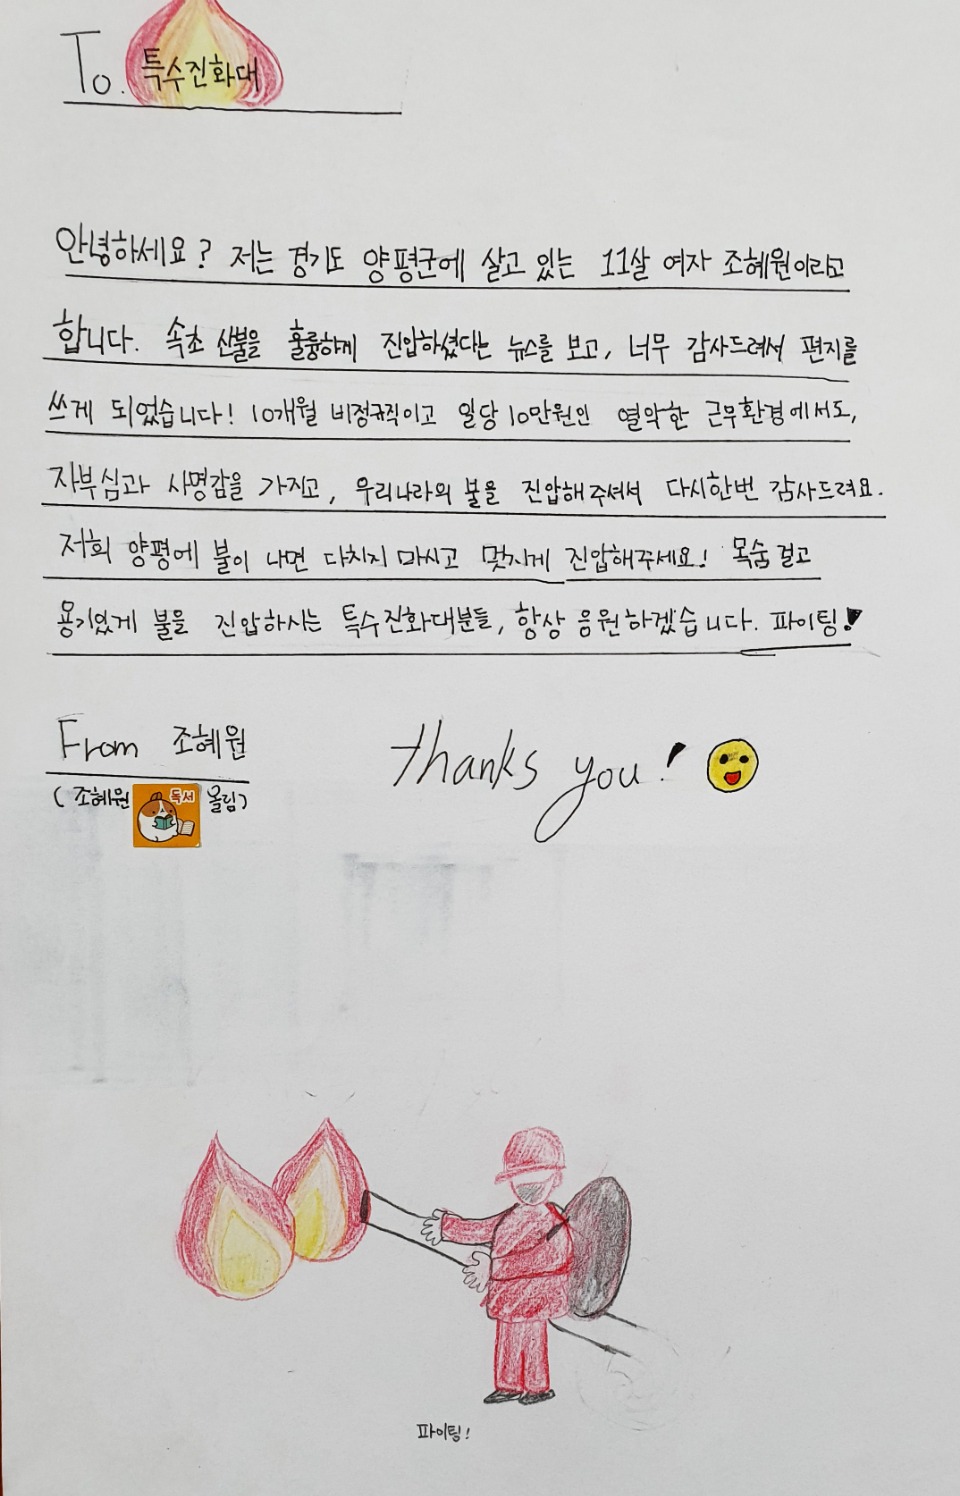 To. 특수진화대
안녕하세요? 저는 경기도 양평군에 살고 있는 11살 여자 조혜원이라고
합니다. 속초 산불을 훌륭하게 진압하셨다는 뉴스를 보고, 너무 감사드려서 편지를
쓰게 되었습니다! 10개월 비정규직이고 일당 10만원인 열악한 근무환경에서도,
자부심과 사명감을 가지고, 우리나라의 불을 진압해주셔서 다시한번 감사드려요.
저희 양평에 불이 나면 다치지 마시고 멋지게 진압해주세요! 목숨 걸고
용기있게 불을 진압하시는 특수진화대분들, 항상 응원하겠습니다. 파이팅!
From 조혜원
thanks you!
(조혜원 독서 올림)
파이팅!